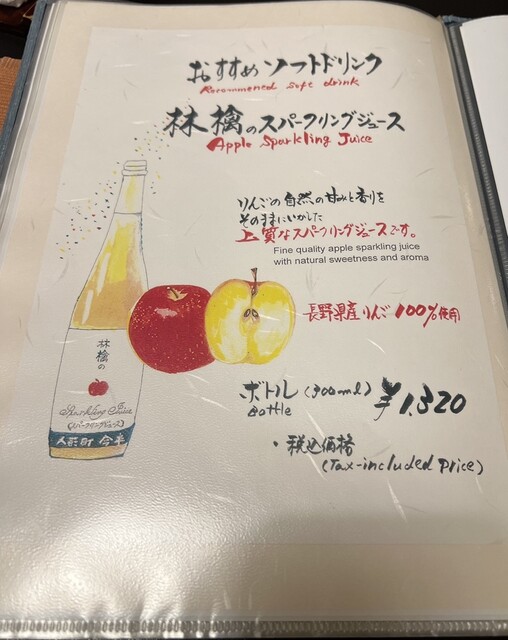 おすすめソフトドリンク
Recommened soft drink
林檎のスパークリングジュース
Apple Sparkling Juice
りんごの自然の甘みと香りを
そのままにいかした
上質なスパークリングジュースです。
Fine quality apple sparkling juice
with natural sweetness and aroma
長野県産りんご100%使用
林檎の
Sparkling Juice
(スパークリングジュース)
人形町 今半
ボトル(300ml) ¥1,320
Bottle
・税込価格
(Tax-included price)